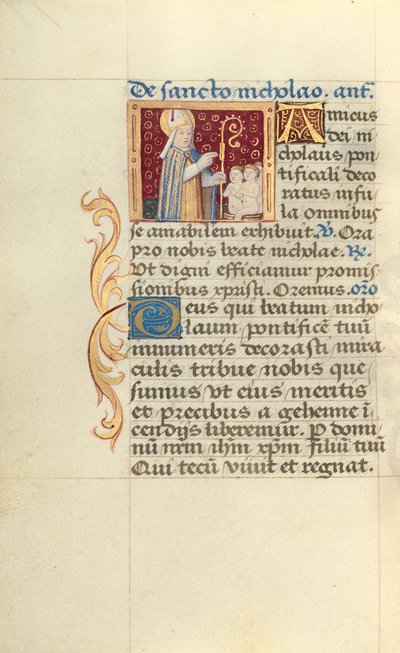 De sancto nicholao. ant̃.
Amicus
dei ni
cholaus pon
tificali deco
ratus infu
la omnibus
se amabilem exhibuit. ℣. Ora
pro nobis beate nicholae. ℟.
Vt digni efficiamur promis
sionibus xpristi. Oremus. oro
Deus qui beatum nicho
laum pontificẽ tuũ
innumeris decorasti mira
culis tribue nobis que
sumus vt eius meritis
et precibus a gehenne ĩ
cendijs liberemur. P domi
nũ nr̃m ihm̃ xpm̃ filiũ tuũ
Qui tecũ viuit et regnat.